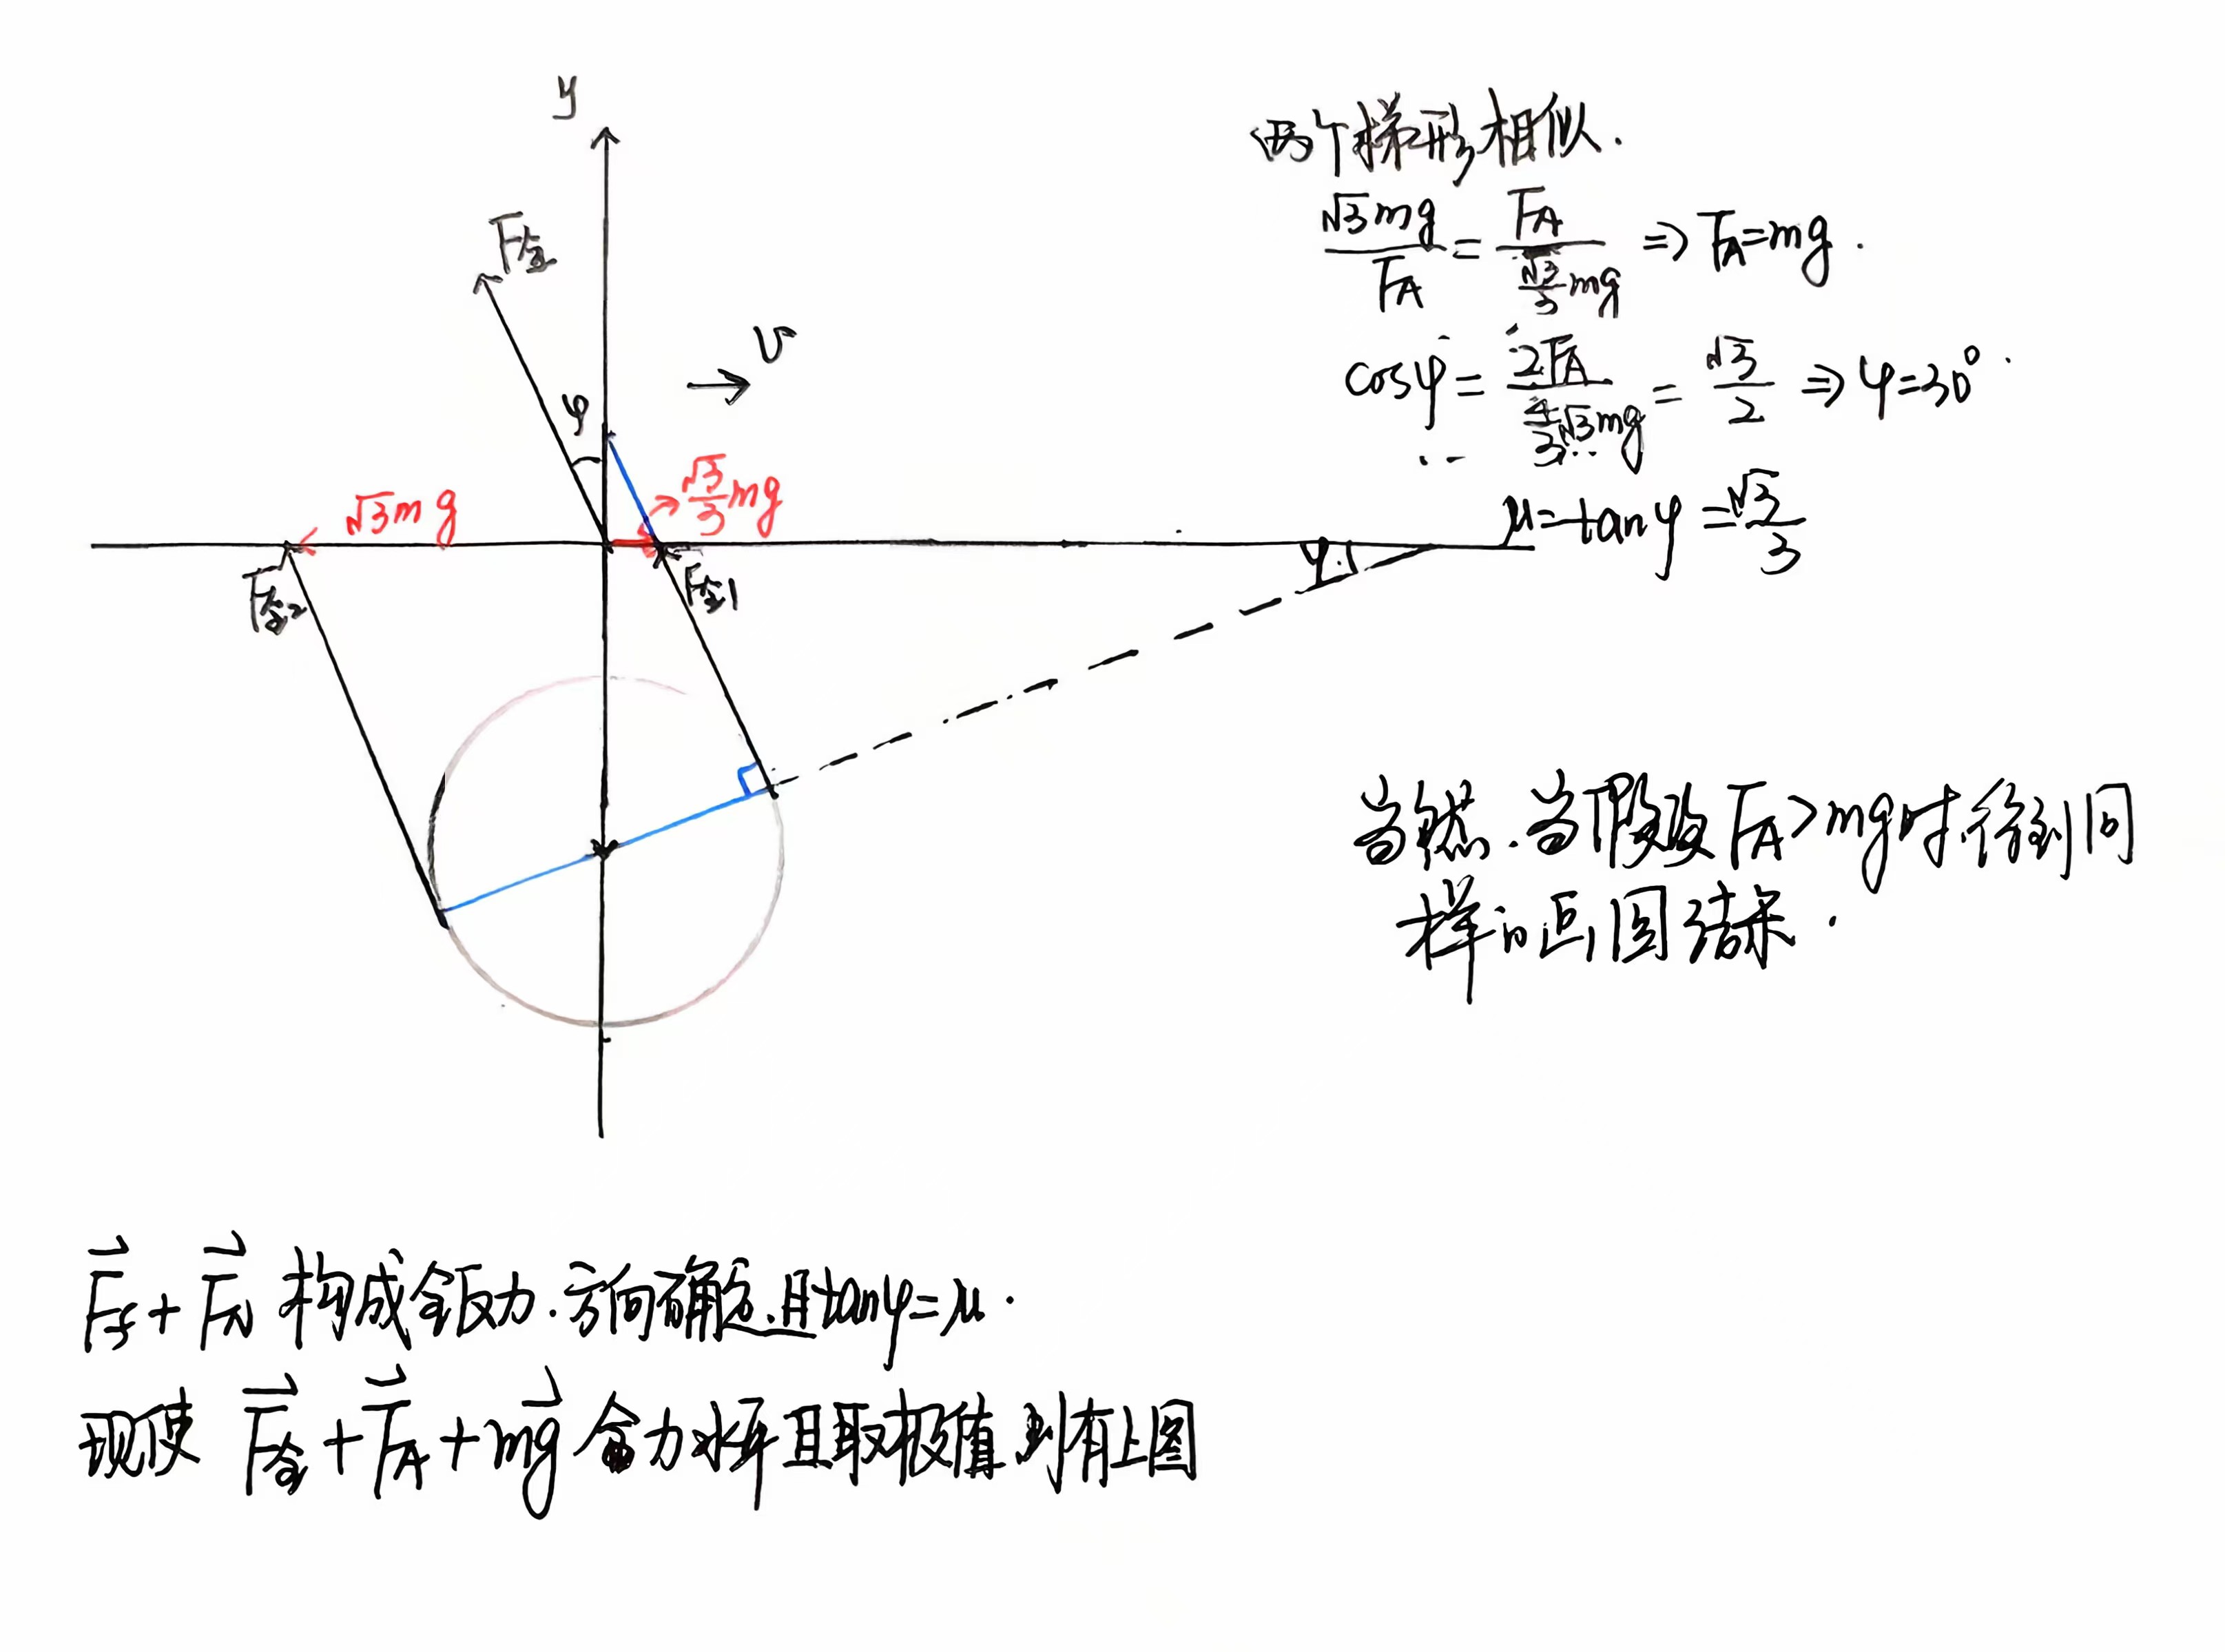 y
F全
φ
v
√3mg
√3/3 mg
F合2
F合1
φ
两个梯形相似.
√3mg/F_A = F_A/(√3/3 mg) ⇒ F_A=mg.
cosφ = 2F_A/(4/3 √3mg) = √3/2 ⇒ φ=30°
μ=tanφ=√3/3
当然.当假设F_A>mg时.得到同
样的画图结果.
F⃗f+F⃗N 构成全反力.方向确定.且tanφ=μ.
现使 F⃗全+F⃗A+mg⃗ 合力水平且取极值 则有上图